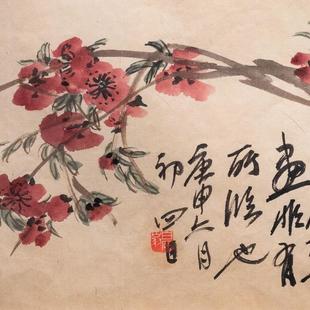 畫非有
所臨也
庚申六月
初四日